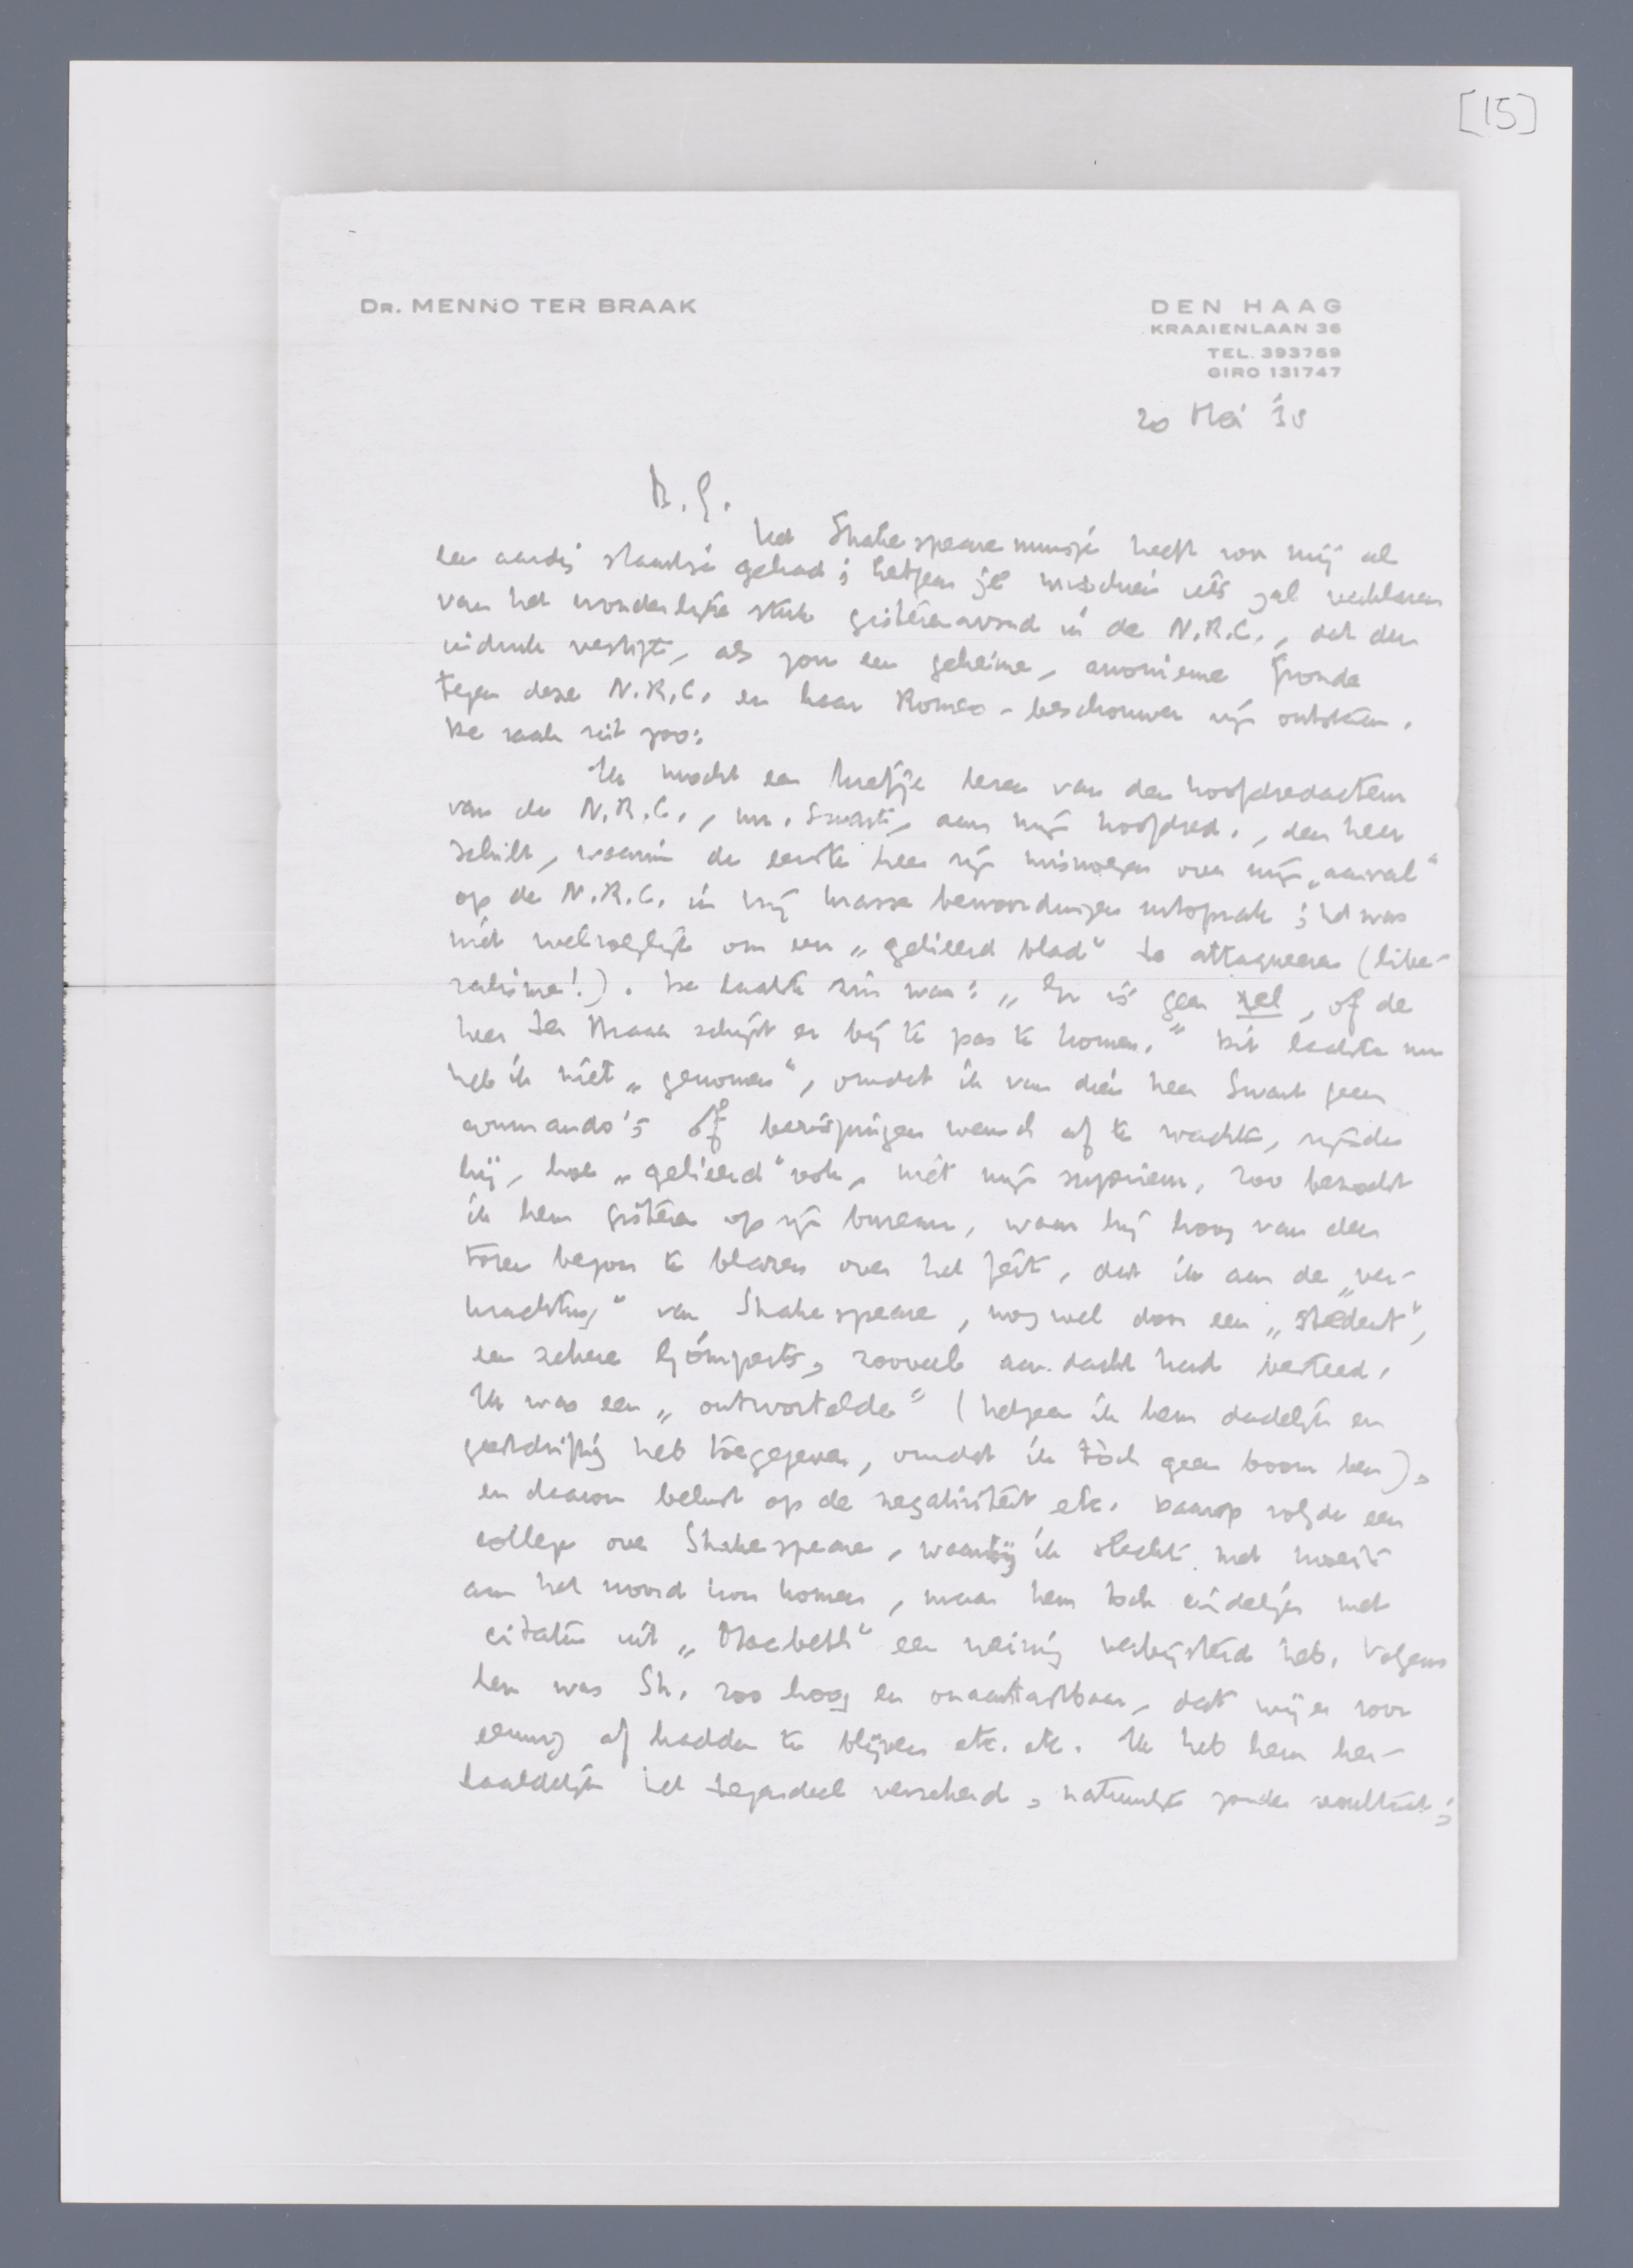 [15]
DR. MENNO TER BRAAK
DEN HAAG
KRAAIENLAAN 36
TEL. 393769
GIRO 131747
20 Mei '38
B. G.
Het Shakespearemuisje heeft voor mij al
een aardig staartje gehad; hetgeen je misschien iets zal verklaren
van het wonderlijke stuk gisterenavond in de N.R.C., dat den
indruk vestigt, als zou een geheime, anonieme Fronde
tegen deze N.R.C. en haar Romeo-beschouwer zijn ontstaan.
De zaak zit zoo:
Ik mocht een briefje lezen van den hoofdredacteur
van de N.R.C., mr. Swart, aan mijn hoofdred., den heer
Schilt, waarin de eerste heer zijn misnoegen over mijn „aanval"
op de N.R.C. in vrij krasse bewoordingen uitsprak; het was
niet welvoeglijk om een „gelieerd blad" te attaqueeren (libe-
ralisme!). De laatste zin was: „Er is geen rel, of de
heer Ter Braak schijnt er bij te pas te komen." Dit laatste nu
heb ik niet „genomen", omdat ik van dien heer Swart geen
commando's óf berispingen wensch af te wachten, zijnde
hij, hoe „gelieerd" ook, niet mijn superieur. Zoo bezocht
ik hem gisteren op zijn bureau, waar hij hoog van den
toren begon te blazen over het feit, dat ik aan de „ver-
krachting" van Shakespeare, nog wel door een „student",
een zekere Gomperts, zooveel aandacht had besteed.
Ik was een „ontwortelde" (hetgeen ik hem dadelijk en
geestdriftig heb toegegeven, omdat ik tòch geen boom ben),
en daarom belust op de negativiteit etc. Daarop volgde een
college over Shakespeare, waarbij ik slechts met moeite
aan het woord kon komen, maar hem toch eindelijk met
citaten uit „Macbeth" een weinig verbijsterd heb. Volgens
hem was Sh. zoo hoog en onaantastbaar, dat wij er voor
eeuwig af hadden te blijven etc. etc. Ik heb hem her-
haaldelijk het tegendeel verzekerd, natuurlijk zonder resultaat;